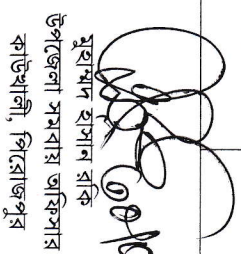 মুহাম্মদ হাসান রকি
উপজেলা সমবায় অফিসার
কাউখালী, পিরোজপুর